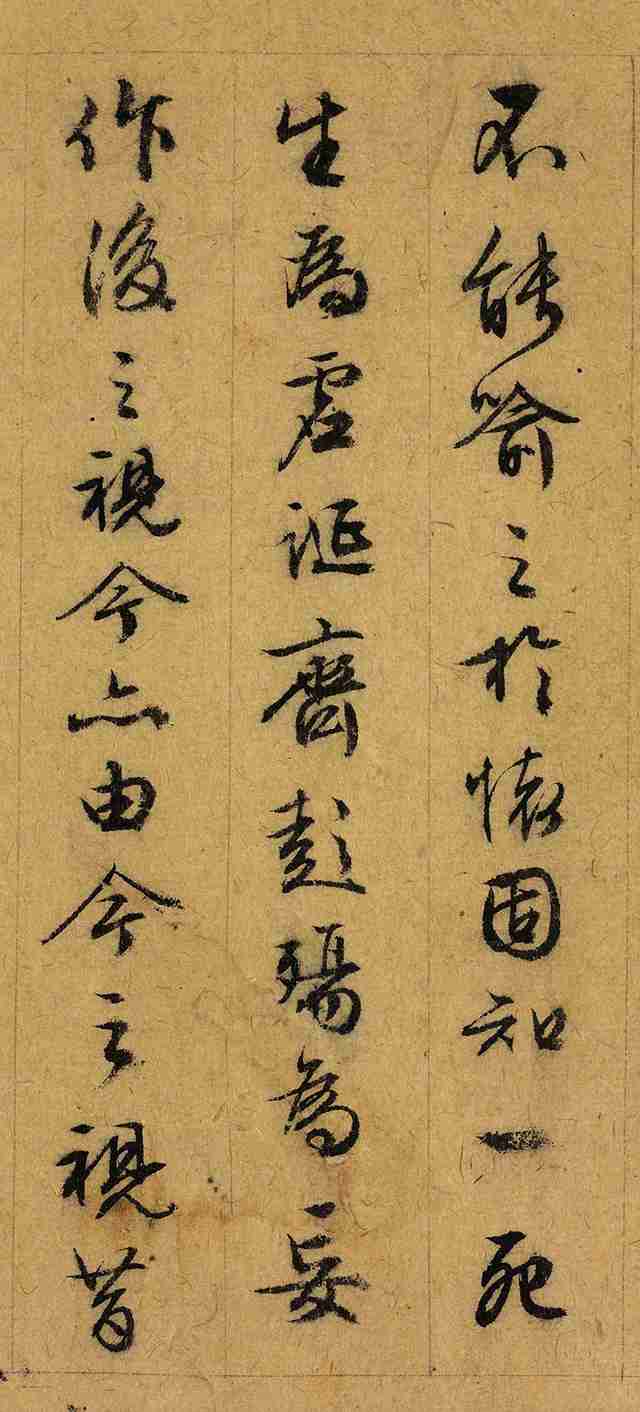 不能喻之於懷固知一死
生為虛誕齊彭殤為妄
作後之視今亦由今之視昔